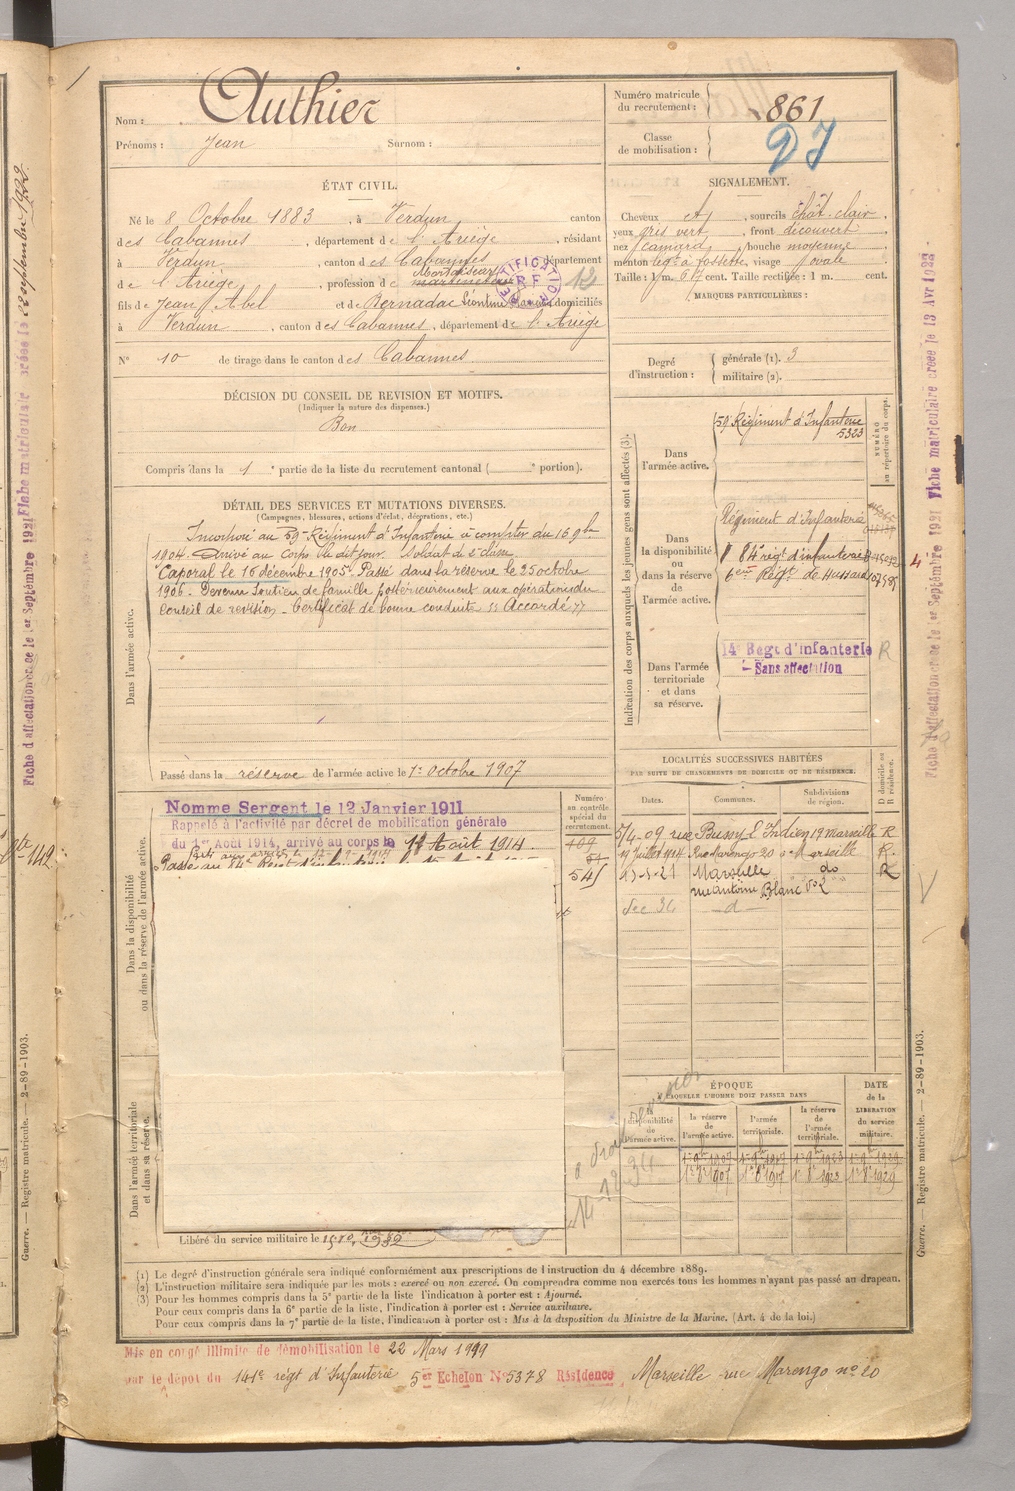 Nom : Authier
Prénoms : Jean Surnom :
Numéro matricule du recrutement : 861
Classe de mobilisation :
ÉTAT CIVIL.
Né le 8 Octobre 1883, à Verdun canton
des Cabannes, département de l'Ariège, résidant
à Verdun, canton des Cabannes département
de l'Ariège, profession de
12
fils de Jean Abel et de Bernadac Léontine domiciliés
à Verdun, canton des Cabannes, département de l'Ariège
N° 10 de tirage dans le canton des Cabannes
DÉCISION DU CONSEIL DE REVISION ET MOTIFS.
(Indiquer la nature des dispenses.)
Bon
Compris dans la 1 e partie de la liste du recrutement cantonal ( e portion).
DÉTAIL DES SERVICES ET MUTATIONS DIVERSES.
(Campagnes, blessures, actions d'éclat, décorations, etc.)
Dans l'armée active.
Incorporé au 59e Régiment d'Infanterie à compter du 16 9bre
1904. Arrivé au Corps le dit jour. Soldat de 2e classe
Caporal le 16 décembre 1905. Passé dans la réserve le 25 octobre
1906. Devenu soutien de famille postérieurement aux opérations du
Conseil de revision. Certificat de bonne conduite "Accordé"
Passé dans la réserve de l'armée active le 1er Octobre 1907
Dans la disponibilité ou dans la réserve de l'armée active.
Nommé Sergent le 12 Janvier 1911
Rappelé à l'activité par décret de mobilisation générale
du 1er Août 1914, arrivé au corps le Août 1914
Dans l'armée territoriale et dans sa réserve.
Libéré du service militaire le
Numéro au contrôle spécial du recrutement.
109
545
SIGNALEMENT.
Cheveux et, sourcils chât. clair
yeux gris vert, front découvert
nez camard, bouche moyenne
menton leg. à fossette, visage ovale
Taille : 1 m. 67 cent. Taille rectifiée : 1 m. cent.
MARQUES PARTICULIÈRES :
Degré d'instruction : générale (1). 3
militaire (2).
Indication des corps auxquels les jeunes gens sont affectés (3).
NUMÉRO au répertoire du corps.
Dans l'armée active.
59e Régiment d'Infanterie
5323
Dans la disponibilité ou dans la réserve de l'armée active.
Régiment d'Infanterie
84e régt d'infanterie
6ème Régt de Hussards
Dans l'armée territoriale et dans sa réserve.
14e Régt d'infanterie R
Sans affectation
LOCALITÉS SUCCESSIVES HABITÉES
PAR SUITE DE CHANGEMENTS DE DOMICILE OU DE RÉSIDENCE.
Dates. Communes. Subdivisions de région. D domicile ou R résidence.
5/4-09 rue Bussy L'Indien 19 Marseille R
19 Juillet 1914 Rue Marengo 20 Marseille R.
Marseille do R
rue Antoine Blanc
Dec 34 — d —
ÉPOQUE
À LAQUELLE L'HOMME DOIT PASSER DANS
la disponibilité de l'armée active. la réserve de l'armée active. l'armée territoriale. la réserve de l'armée territoriale.
DATE de la LIBÉRATION du service militaire.
1er 9bre 1907 1er 9bre 1917 1er 9bre 1923 1er 9bre 1929
1er 8bre 1907 1er 8bre 1917 1er 8bre 1923 1er 8bre 1929
(1) Le degré d'instruction générale sera indiqué conformément aux prescriptions de l'instruction du 4 décembre 1889.
(2) L'instruction militaire sera indiquée par les mots : exercé ou non exercé. On comprendra comme non exercés tous les hommes n'ayant pas passé au drapeau.
(3) Pour les hommes compris dans la 5e partie de la liste l'indication à porter est : Ajourné.
Pour ceux compris dans la 6e partie de la liste, l'indication à porter est : Service auxiliaire.
Pour ceux compris dans la 7e partie de la liste, l'indication à porter est : Mis à la disposition du Ministre de la Marine. (Art. 4 de la loi.)
Mis en congé illimité de démobilisation le 22 Mars 1919
par le dépôt du 141e régt d'Infanterie 5e Echelon N° 5378 Résidence Marseille rue Marengo n° 20
Guerre. — Registre matricule. — 2-89-1903.
Guerre. — Registre matricule. — 2-89-1903.
Fiche d'affectation créée le 1er Septembre 1921 Fiche matriculaire créée le 13 Avr 1922
Fiche d'affectation créée le 1er Septembre 1921 Fiche matriculaire créée le 22 septembre 1922